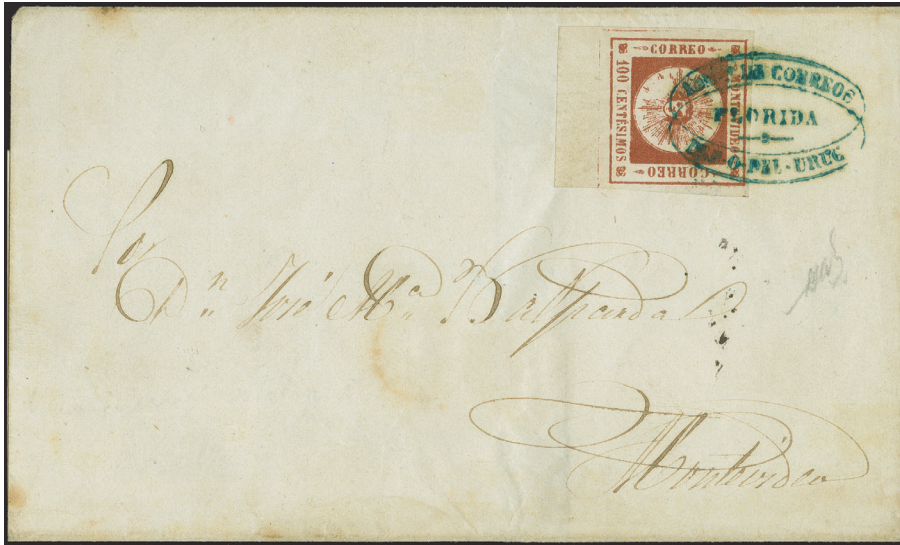 CORREO
100 CENTESIMOS
MONTEVIDEO
CORREO
DE CORREOS
FLORIDA
URUG
Sor
Dn José Ma
Montevideo